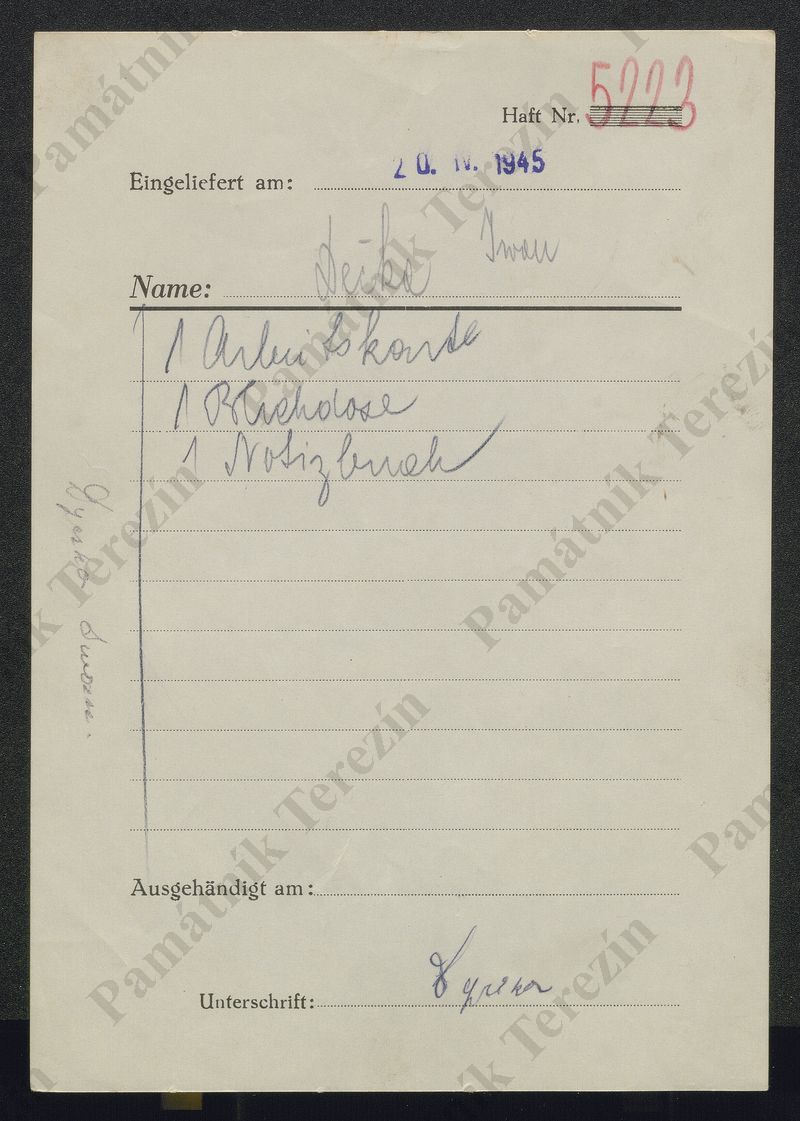 Haft Nr. 5223
Eingeliefert am: 20. IV. 1945
Name: Deika Iwan
1 Arbeitskarte
1 Blechdose
1 Notizbuch
Ausgehändigt am:
Unterschrift:
Památník Terezín